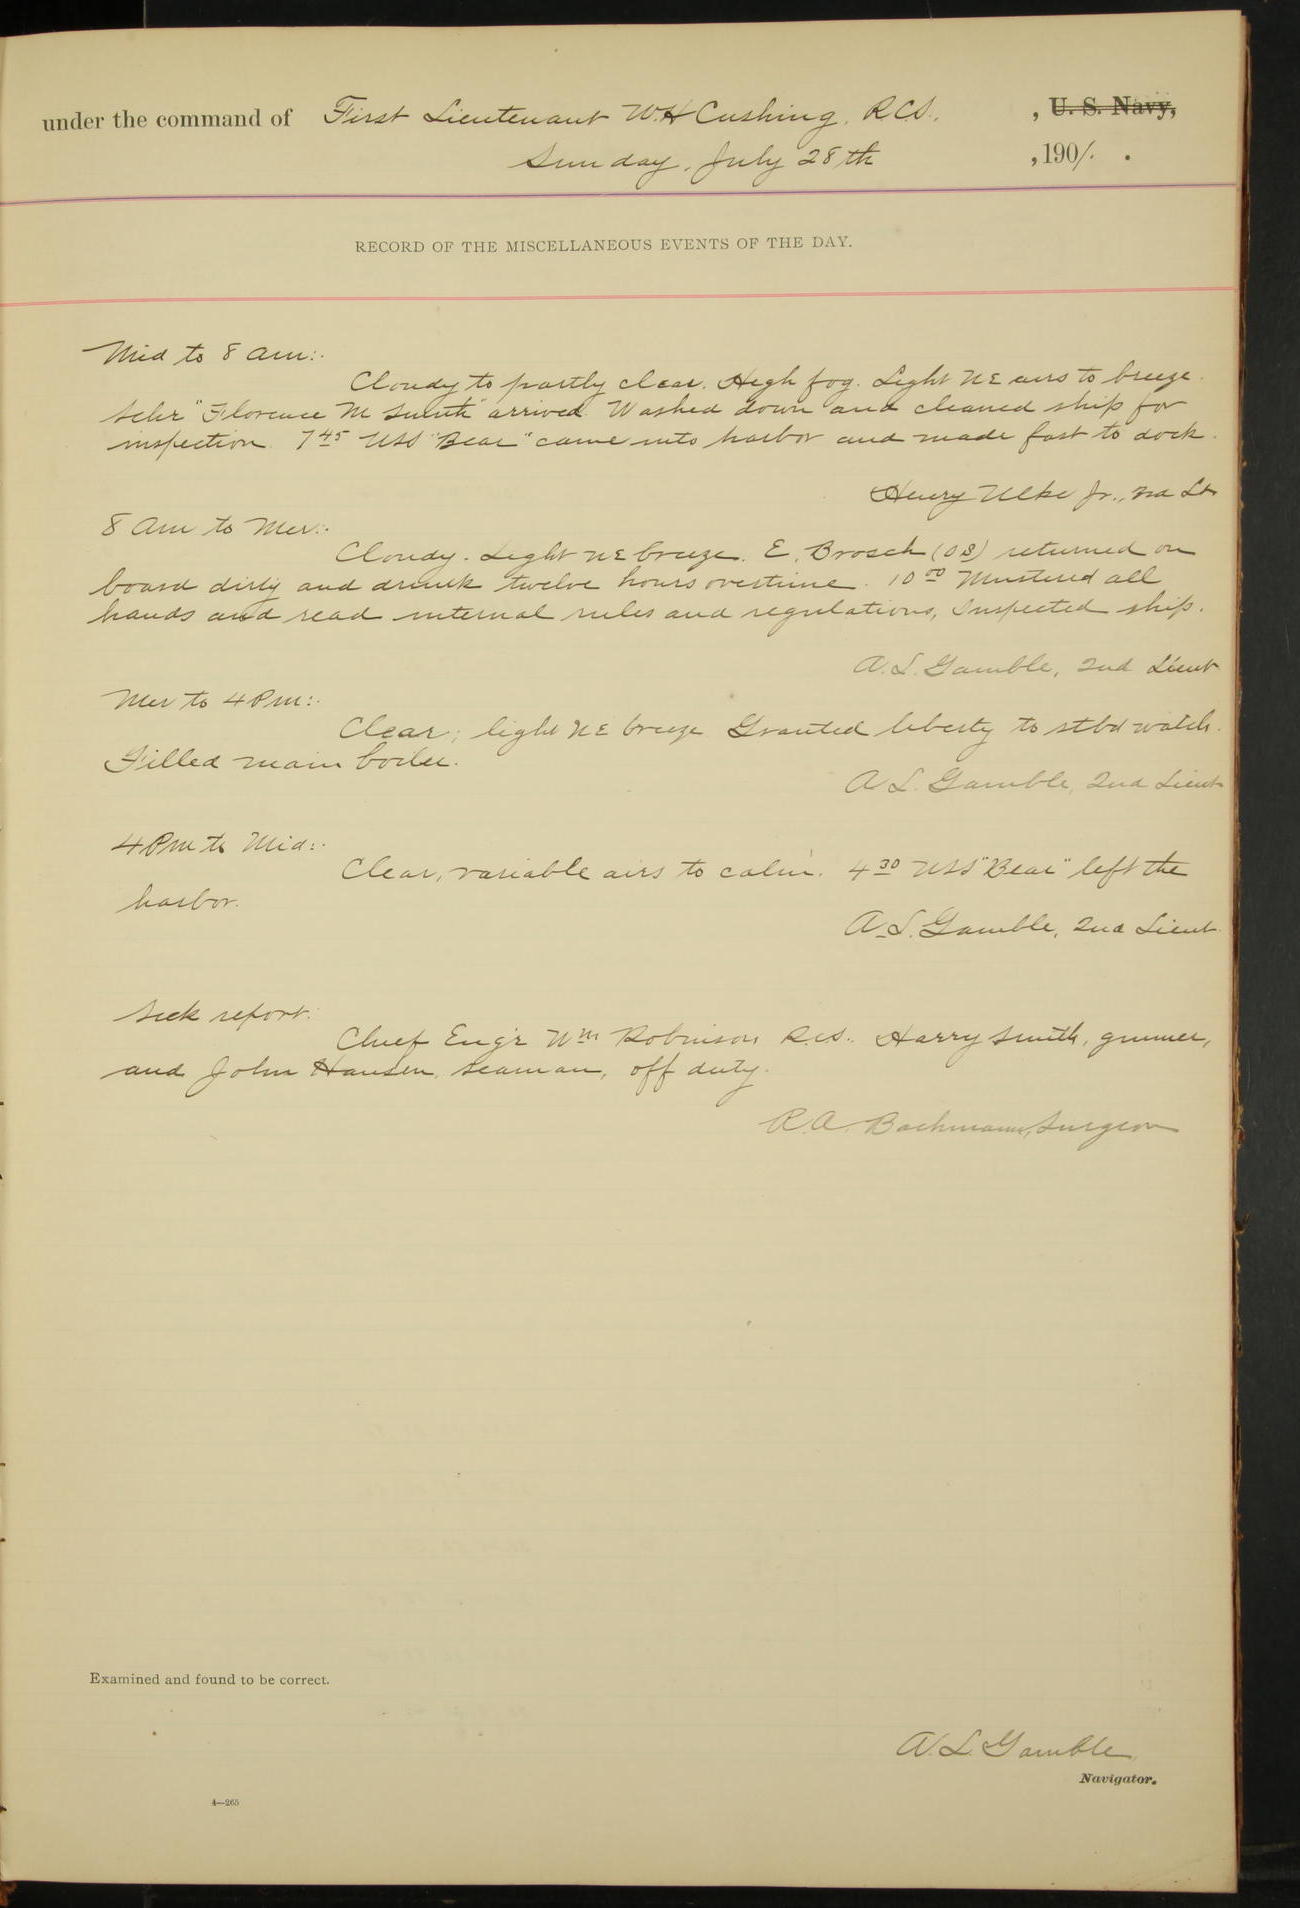 under the command of First Lieutenant W.H Cushing, R.C.S., , U. S. Navy,
Sunday, July 28th , 1901. .
RECORD OF THE MISCELLANEOUS EVENTS OF THE DAY.
Mid to 8 am:.
Cloudy to partly clear. High fog. Light NE airs to breeze.
Schr "Florence M Smith" arrived. Washed down and cleaned ship for
inspection. 7 45 USS "Bear" came into harbor and made fast to dock.
Henry Ulke Jr., 3rd Lt
8 am to Mer:.
Cloudy. Light NE breeze. E. Brosch (OS) returned on
board dirty and drunk twelve hours overtime. 10 00 Mustered all
hands and read internal rules and regulations, Inspected ship.
A. L. Gamble, 2nd Lieut
Mer to 4 Pm:.
Clear; light NE breeze Granted liberty to stbd watch.
Filled main boiler.
A L. Gamble, 2nd Lieut
4 Pm to Mid:.
Clear, variable airs to calm. 4 30 USS "Bear" left the
harbor.
A. L. Gamble, 2nd Lieut.
Sick report:
Chief Eng'r Wm Robinson R.C.S., Harry Smith, gunner,
and John Hansen, seaman, off duty.
R.A. Bachmann, Surgeon
Examined and found to be correct.
A. L. Gamble
Navigator.
4—265